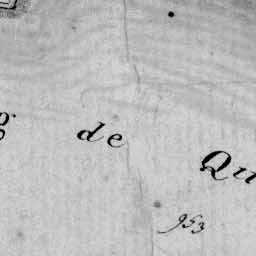 de Qu
953